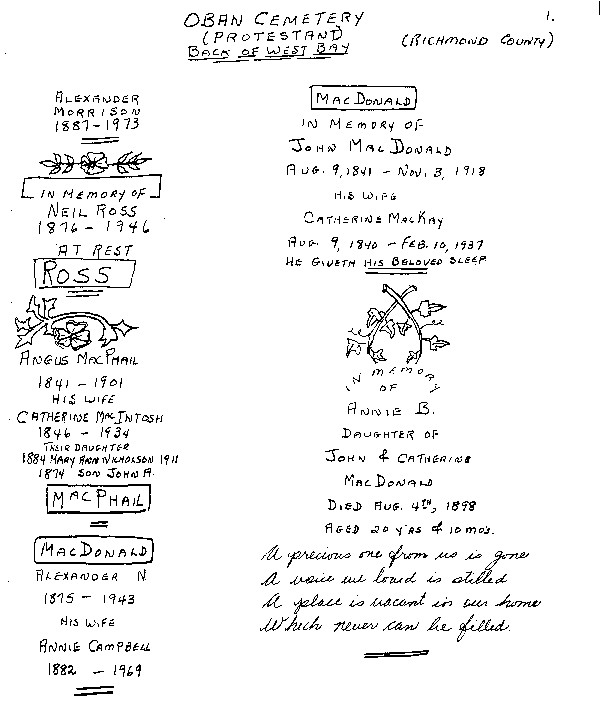 OBAN CEMETERY
(PROTESTANT)
BACK OF WEST BAY
(RICHMOND COUNTY)
1.
ALEXANDER
MORRISON
1887-1973
IN MEMORY OF
NEIL ROSS
1876 - 1946
AT REST
ROSS
ANGUS MACPHAIL
1841 - 1901
HIS WIFE
CATHERINE MACINTOSH
1846 - 1934
THEIR DAUGHTER
1884 MARY ANN NICHOLSON 1911
1874 SON JOHN A.
MACPHAIL
MACDONALD
ALEXANDER N
1875 - 1943
HIS WIFE
ANNIE CAMPBELL
1882 - 1969
MACDONALD
IN MEMORY OF
JOHN MACDONALD
AUG. 9, 1841 - NOV. 3, 1918
HIS WIFE
CATHERINE MACKAY
AUG 9, 1840 - FEB. 10, 1937
HE GIVETH HIS BELOVED SLEEP
IN MEMORY
OF
ANNIE B.
DAUGHTER OF
JOHN & CATHERINE
MACDONALD
DIED AUG. 4TH, 1898
AGED 20 Y'RS & 10 MO'S.
A precious one from us is gone
A voice we loved is stilled
A place is vacant in our home
Which never can be filled.